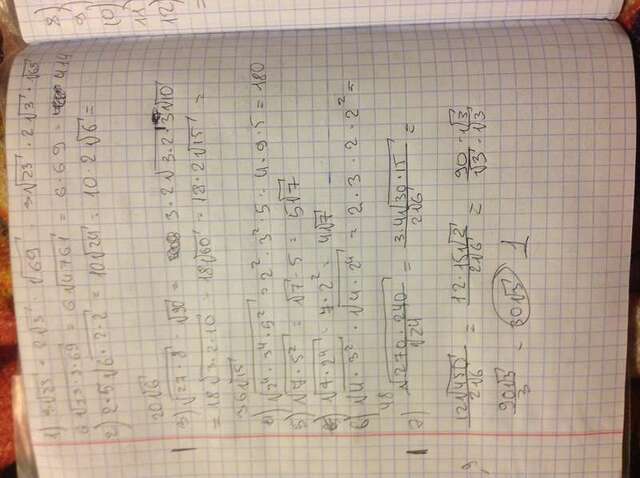 1) 3√23 · 2√3 · √69 = 3√23 · 2√3 · √69
6√23·3·69 = 6√4761 = 6·69 = 414
2) 2·5√6·2·2 = 10√24 = 10·2√6 =
20√6
3) √27·8 · √90 = 3·2√3·2 · 3√10
= 18√3·2·10 = 18√60 = 18·2√15 =
36√15
4) √2⁴·3⁴·5² = 2²·3²·5 = 4·9·5 = 180
5) √7·5² = √7·5 = 5√7
√7·2⁴ = 7·2² = 4√7
6) √4·3² · √4·2⁴ = 2·3·2·2² =
48
7) √270·240 / √24 = 3·4√30·15 / 2√6 =
12√450 / 2√6 = 12·15√2 / 2√6 = 90·√3 / √3·√3
90√3 / 3 = 30√3 1
8)
9)
10)
11
12)
=